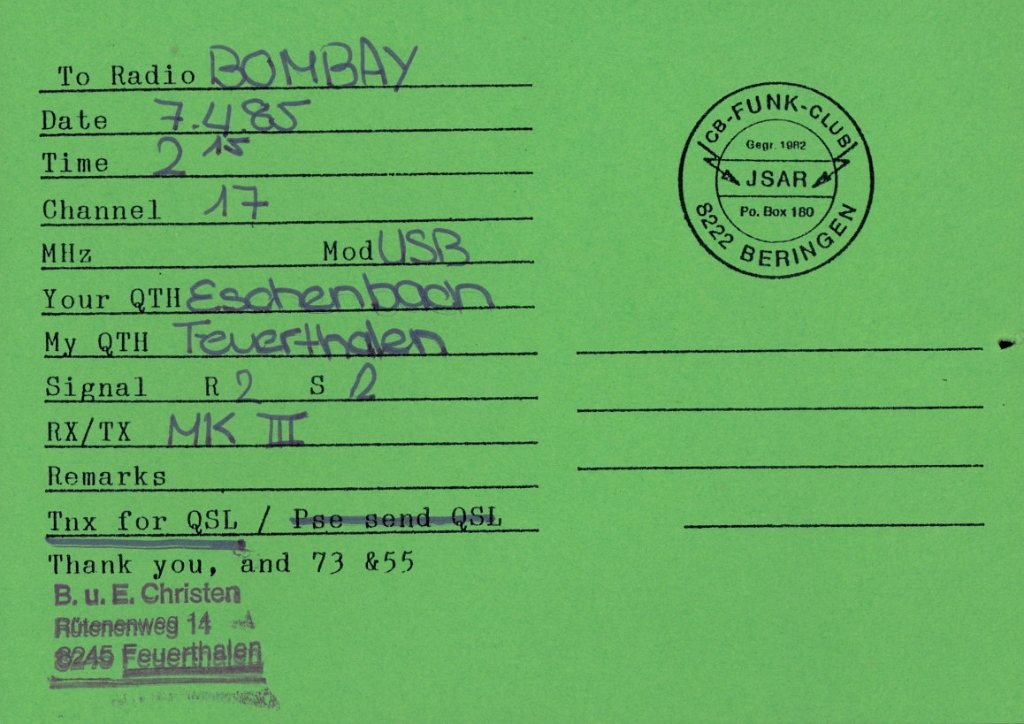 To Radio BOMBAY
Date 7.4.85
Time 2 15
Channel 17
MHz Mod USB
Your QTH Eschenbach
My QTH Feuerthalen
Signal R 2 S 2
RX/TX MK III
Remarks
Tnx for QSL / Pse send QSL
Thank you, and 73 &55
B. u. E. Christen
Rütenenweg 14
8245 Feuerthalen
CB-FUNK-CLUB
Gegr. 1982
JSAR
Po. Box 180
8222 BERINGEN